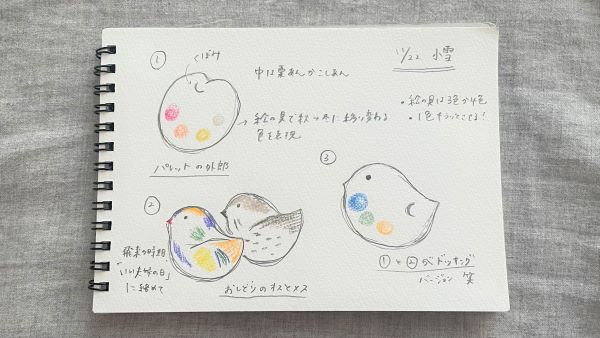 ①
くぼみ
中は栗あんかこしあん
11/22 小雪
・絵の具は3色か4色
・1色キラッとさせる!
→絵の具で秋→冬に移り変わる
色を表現
パレットの外郎
②
飛来の時期
「いい夫婦の日」
に絡めて
おしどりのオスとメス
③
①と②がドッキング
バージョン 笑